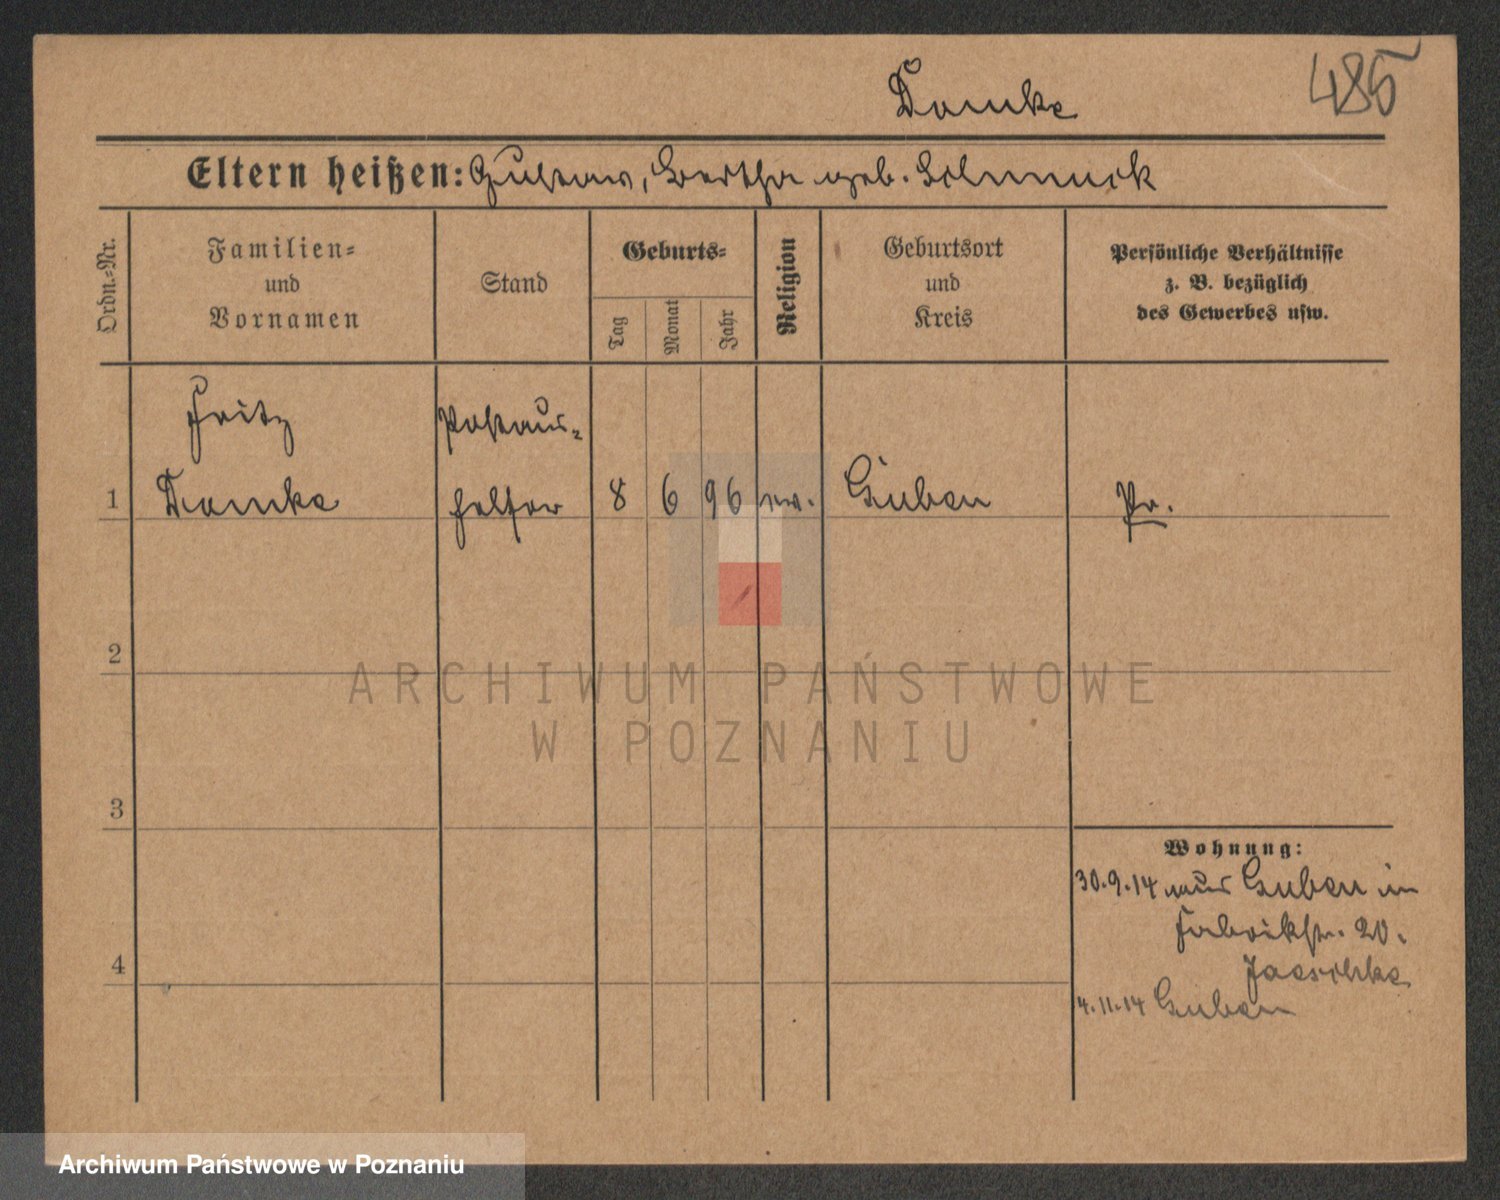 485
Domke
Eltern heißen: Gustav, Bertha geb. Schmuck
Ordn.-Nr.
Familien-
und
Vornamen
Stand
Geburts-
Tag
Monat
Jahr
Religion
Geburtsort
und
Kreis
Persönliche Verhältnisse
z. B. bezüglich
des Gewerbes usw.
Fritz
Postaus-
1 Domke helfer 8 6 96 ev. Guben Pr.
2
ARCHIWUM PAŃSTWOWE
W POZNANIU
3
Wohnung:
30.9.14 aus Guben in
Fabrikstr. 20.
Jaeschke
4
4.11.14 Guben
Archiwum Państwowe w Poznaniu